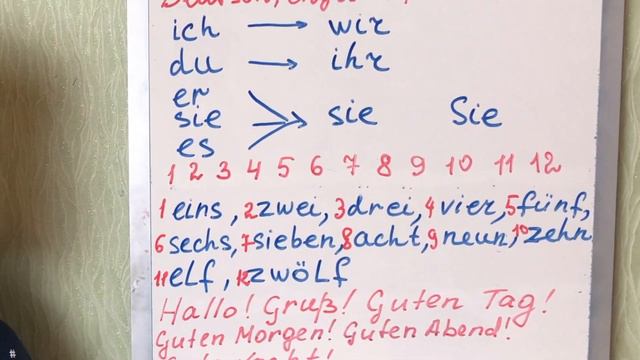 ich → wir
du → ihr
er
sie sie Sie
es
1 2 3 4 5 6 7 8 9 10 11 12
1 eins, 2 zwei, 3 drei, 4 vier, 5 fünf,
6 sechs, 7 sieben, 8 acht, 9 neun, 10 zehn
11 elf, 12 zwölf
Hallo! Gruß! Guten Tag!
Guten Morgen! Guten Abend!